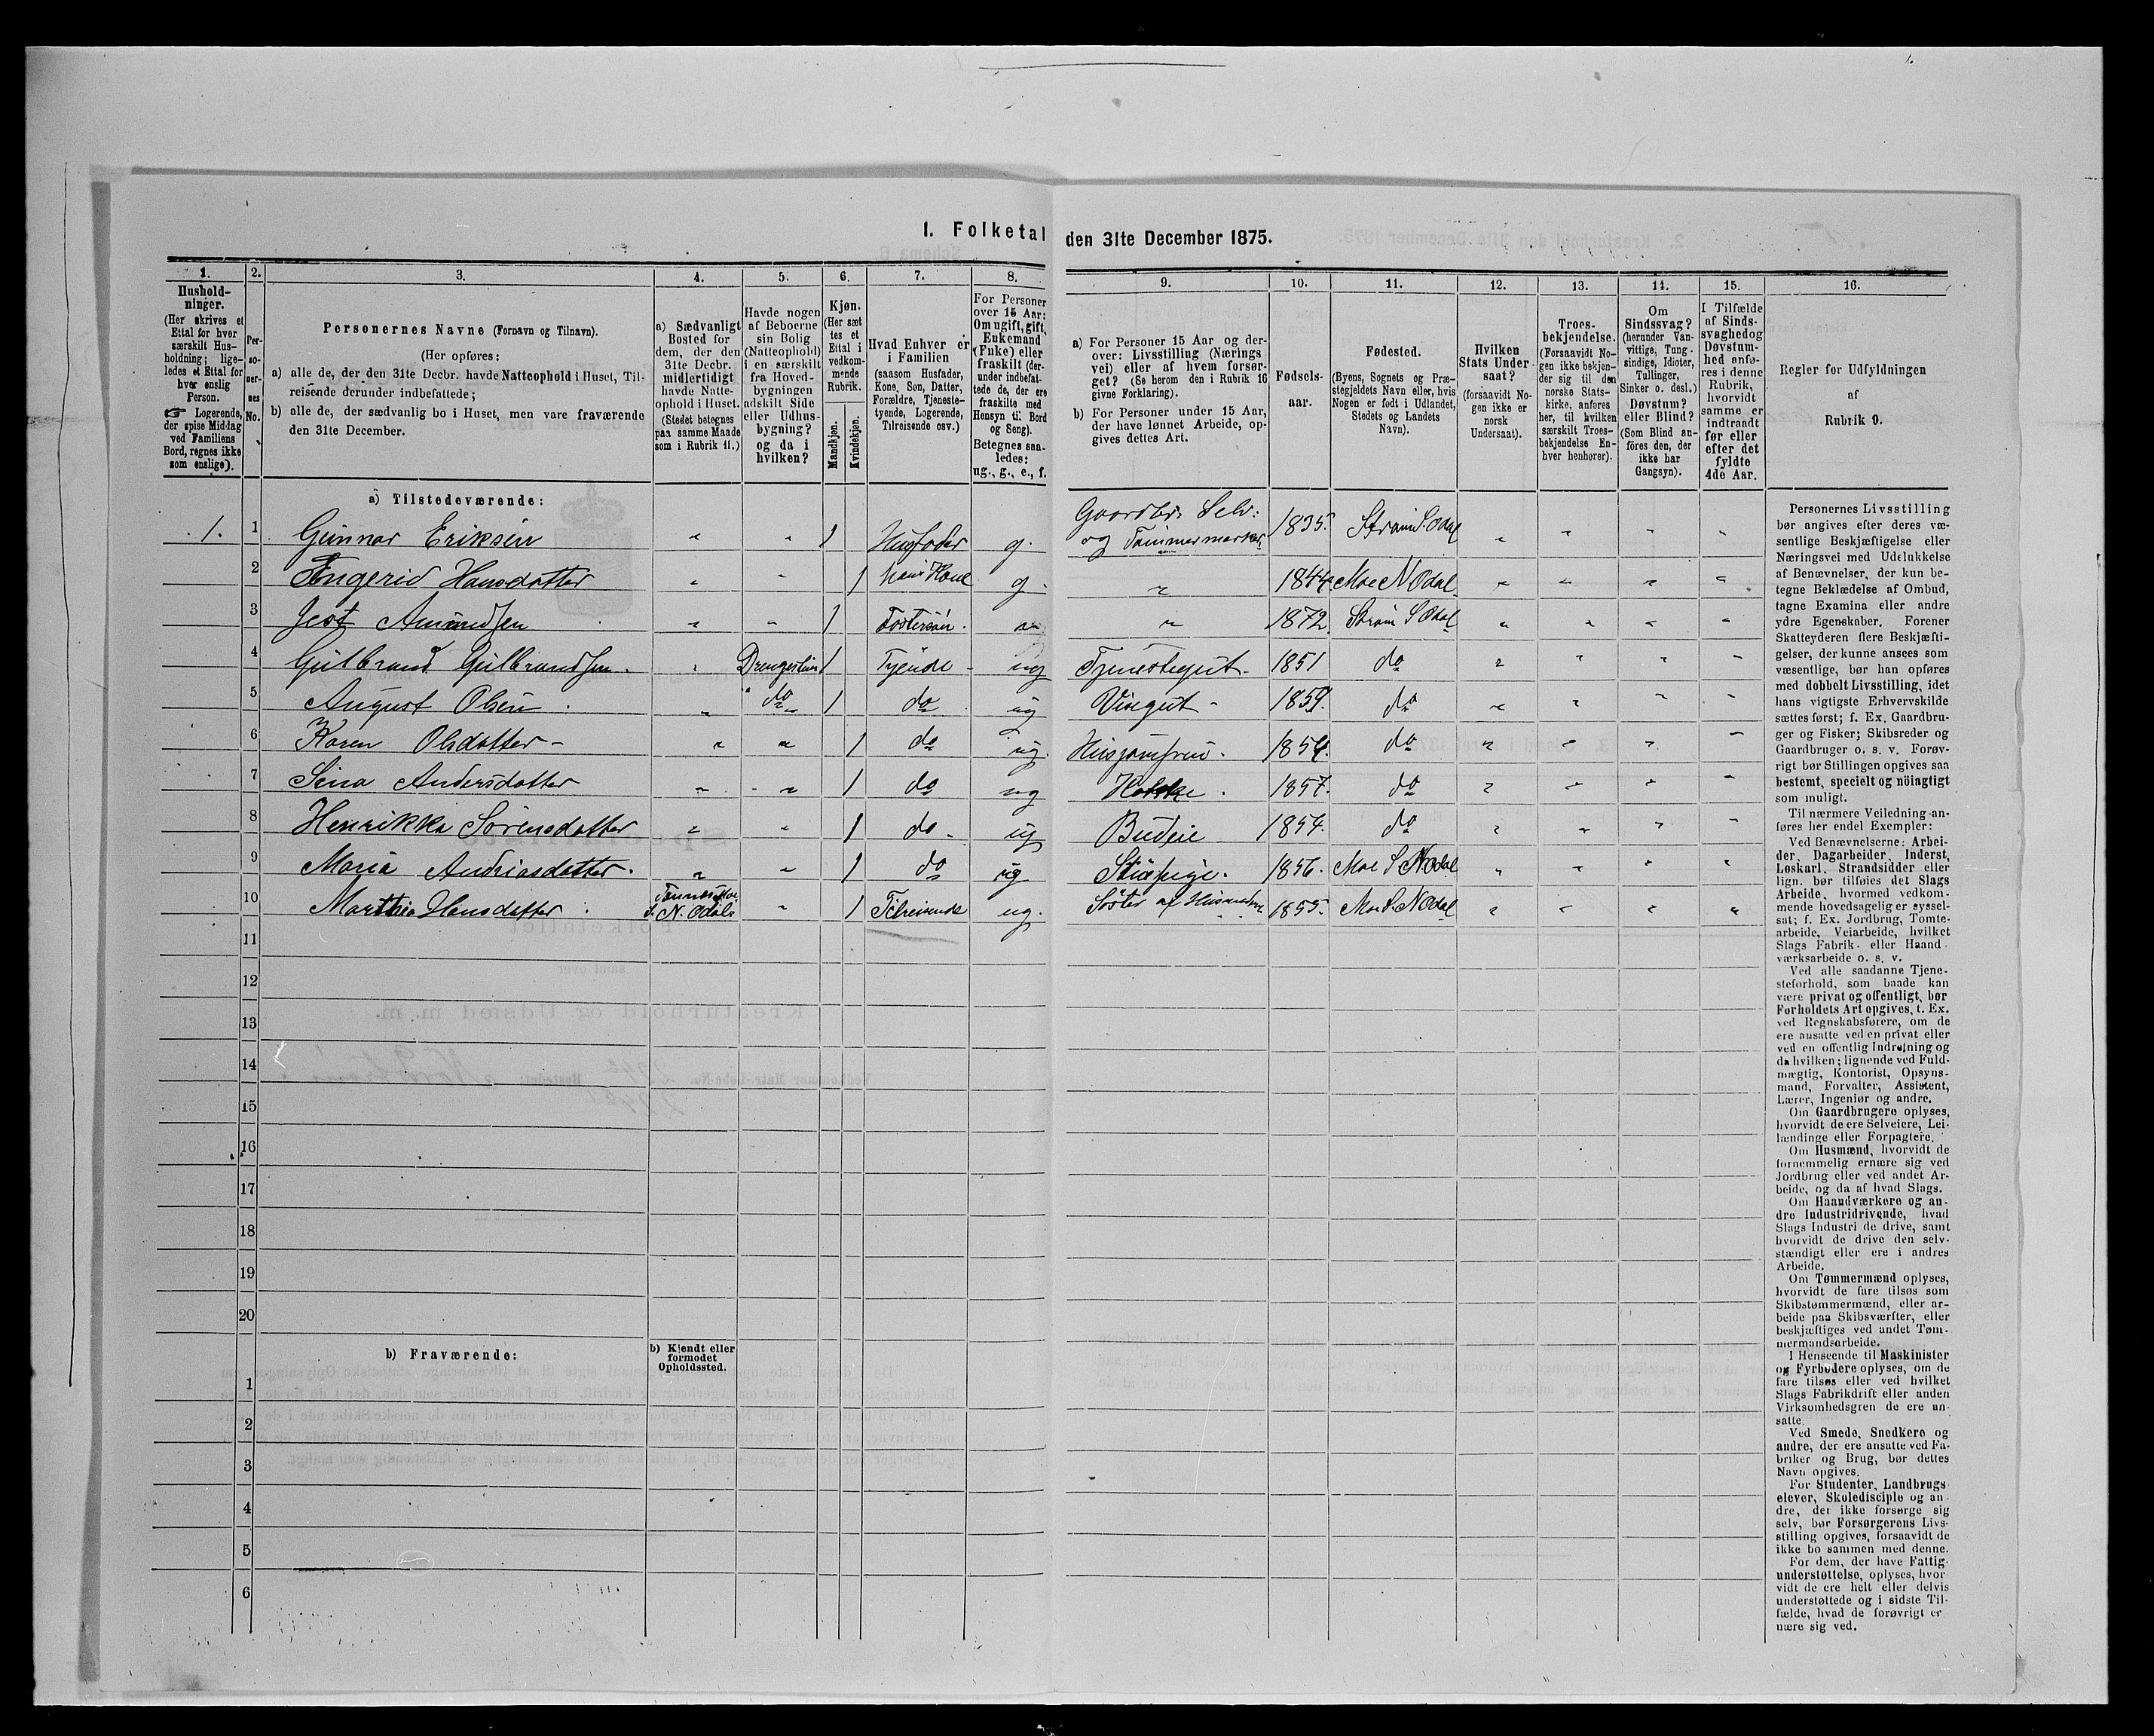 I. Folketal den 31te December 1875.
1. 2. 3. 4. 5. 6. 7. 8. 9. 10. 11. 12. 13. 14. 15. 16.
Hushold-
ninger.
(Her skrives et
Ettal for hver
særskilt Hus-
holdning; lige-
ledes et Ettal for
hver enslig
Person.
☞ Logerende,
der spise Middag
ved Familiens
Bord, regnes ikke
som enslige).
Per-
so-
ner-
nes
No.
Personernes Navne (Fornavn og Tilnavn).
(Her opføres:
a) alle de, der den 31te Decbr. havde Natteophold i Huset, Til-
reisende derunder indbefattede;
b) alle de, der sædvanlig bo i Huset, men vare fraværende
den 31te December.
a) Sædvanligt
Bosted for
dem, der den
31te Decbr.
midlertidigt
havde Natte-
ophold i Huset.
(Stedet betegnes
paa samme Maade
som i Rubrik 11.)
Havde nogen
af Beboerne
sin Bolig
(Natteophold)
i en særskilt
fra Hoved-
bygningen
adskilt Side
eller Udhus-
bygning?
og da i
hvilken?
Kjøn.
(Her sæt
tes et
Ettal i
vedkom-
mende
Rubrik.
Mandkjøn.
Kvindekjøn.
Hvad Enhver er
i Familien
(saasom Husfader,
Kone, Søn, Datter,
Forældre, Tjeneste-
tyende, Logerende,
Tilreisende osv.)
For Personer
over 15 Aar:
Om ugift, gift,
Enkemand
(Enke) eller
fraskilt (der-
under indbefat-
tede de, der ere
fraskilte med
Hensyn til Bord
og Seng).
Betegnes saa-
ledes:
ug., g., e., f.
a) For Personer 15 Aar og der-
over: Livsstilling (Nærings
vei) eller af hvem forsør-
get? (Se herom den i Rubrik 16
givne Forklaring).
b) For Personer under 15 Aar,
der have lønnet Arbeide, op-
gives dettes Art.
Fødsels-
aar.
Fødested.
(Byens, Sognets og Præ-
stegjeldets Navn eller, hvis
Nogen er født i Udlandet,
Stedets og Landets
Navn).
Hvilken
Stats Under
saat?
(forsaavidt No-
gen ikke er
norsk
Undersaat).
Troes-
bekjendelse.
(Forsaavidt No-
gen ikke bekjen-
der sig til den
norske Stats-
kirke, anføres
her, til hvilken
særskilt Troes-
bekjendelse En-
hver henhører).
Om
Sindssvag?
(herunder Van-
vittige, Tung-
sindige, Idioter,
Tullinger,
Sinker o. desl.)
Døvstum?
eller Blind?
(Som Blind an-
föres den, der
ikke har
Gangsyn).
I Tilfælde
af Sinds-
svaghed og
Døvstum-
hed anfø-
res i denne
Rubrik,
hvorvidt
samme er
indtraadt
før eller
efter det
fyldte
4de Aar.
Regler for Udfyldningen
af
Rubrik 9.
a) Tilstedeværende:
1. 1 Gunnar Eriksen " " 1 Husfader g. Gaardbr. Selv: og Tømmermærker 1835. Strøm S. Odal " " " "
2 Engerid Hansdatter " " 1 hans Kone g. " 1844. Moe N Odal " " " "
3 Jest Amundsen " " 1 Fostersøn. " " 1872. Strøm S Odal " " " "
4 Gulbrand Gulbrandsen. " 1 Tyende ug Tjenestegut. 1851 do " " " "
5 August Olsen. " do 1 do ug Visegut 1859. do " " " "
6 Karen Olsdatter " " 1 do ug. Husjomfru. 1854. do " " " "
7 Sina Andersdatter " " 1 do ug Kokke. 1857. do " " " "
8 Henrikka Sørensdatter " " 1 do ug Budeie 1854. do " " " "
9 Maria Andriasdatter. " " 1 do ug Stuepige. 1856. Moe S NOdal " " " "
10 Marthia Hansdatter. S. N. Odals " 1 Tilreisende ug. Søster af 1855. Moe S NOdal " " " "
11
12
13
14
15
16
17
18
19
20
b) Fraværende:
b) Kjendt eller
formodet
Opholdssted.
1
2
3
4
5
6
Personernes Livsstilling
bør angives efter deres væ-
sentlige Beskjæftigelse eller
Næringsvei med Udelukkelse
af Benævnelser, der kun be-
tegne Beklædelse af Ombud,
tagne Examina eller andre
ydre Egenskaber. Forener
Skatteyderen flere Beskjæfti-
gelser, der kunne ansees som
væsentlige, bør han opføres
med dobbelt Livsstilling, idet
hans vigtigste Erhvervskilde
sættes først; f. Ex. Gaardbru-
ger og Fisker; Skibsreder og
Gaardbruger o. s. v. Forøv-
rigt bør Stillingen opgives saa
bestemt, specielt og nöiagtigt
som muligt.
Til nærmere Veiledning an-
føres her endel Exempler:
Ved Benævnelserne: Arbei-
der, Dagarbeider, Inderst,
Løskarl, Strandsidder eller
lign. bør tilføies det Slags
Arbeide, hvormed vedkom-
mende hovedsagelig er syssel-
sat; f. Ex. Jordbrug, Tomte-
arbeide, Veiarbeide, hvilket
Slags Fabrik- eller Haand-
værksarbeide o. s. v.
Ved alle saadanne Tjene-
steforhold, som baade kan
være privat og offentligt, bør
Forholdets Art opgives, t. Ex.
ved Regnskabsførere, om de
ere ansatte ved en privat eller
ved en offentlig Indretning og
da hvilken; lignende ved Fuld-
mægtig, Kontorist, Opsyns-
mand, Forvalter, Assistent,
Lærer, Ingeniør og andre.
Om Gaardbrugere oplyses,
hvorvidt de ere Selveiere, Lei-
lændinge eller Forpagtere.
Om Husmænd, hvorvidt de
fornemmelig ernære sig ved
Jordbrug eller ved andet Ar-
beide, og da af hvad Slags.
Om Haandværkere og an-
dre Industridrivende, hvad
Slags Industri de drive, samt
hvorvidt de drive den selv-
stændigt eller ere i andres
Arbeide.
Om Tømmermænd oplyses,
hvorvidt de fare tilsøs som
Skibstømmermænd, eller ar-
beide paa Skibsværfter, eller
beskjæftiges ved andet Tøm-
mermandsarbeide.
I Henseende til Maskinister
og Fyrbødere oplyses, om de
fare tilsøs eller ved hvilket
Slags Fabrikdrift eller anden
Virksomhedsgren de ere an-
satte.
Ved Smede, Snedkere og
andre, der ere ansatte ved Fa-
briker og Brug, bør dettes
Navn opgives.
For Studenter, Landbrugs-
elever, Skoledisciple og an-
dre, der ikke forsørge sig
selv, bør Forsørgerens Livs-
stilling opgives, forsaavidt de
ikke bo sammen med denne.
For dem, der have Fattig-
understøttelse, oplyses, hvor-
vidt de ere helt eller delvis
understøttede og i sidste Til-
fælde, hvad de forøvrigt er
nære sig ved.